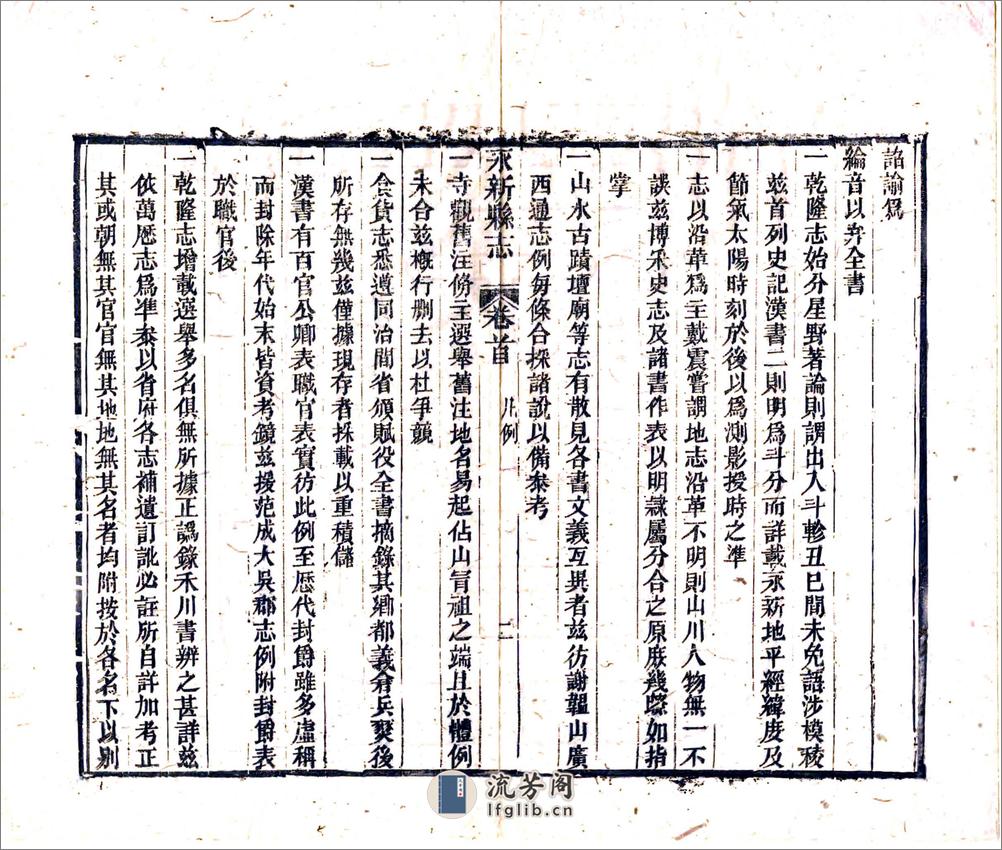 詔諭爲
綸音以弁全書
一乾隆志始分星野著論則謂出入斗軫丑巳間未免語涉模稜
茲首列史記漢書二則明爲斗分而詳載永新地平經緯度及
節氣太陽時刻於後以爲測影授時之準
一志以沿革爲主戴震嘗謂地志沿革不明則山川人物無一不
誤茲博采史志及諸書作表以明隸屬分合之原庶幾瞭如指
掌
一山水古蹟壇廟等志有散見各書文義互異者茲仿謝蘊山廣
西通志例每條合採諸說以備叅考
永新縣志 卷首 凡例 二
一寺觀舊注僧主選舉舊注地名易起佔山冐祖之端且於體例
未合茲槪行删去以杜爭競
一食貨志悉遵同治間省頒賦役全書摘錄其鄉都義倉兵燹後
所存無幾茲僅據現存者採載以重積儲
一漢書有百官公卿表職官表實仿此例至歷代封爵雖多虛稱
而封除年代始末皆資考鏡茲援范成大吳郡志例附封爵表
於職官後
一乾隆志增載選舉多名俱無所據正譌錄禾川書辨之甚詳茲
依萬歷志爲準叅以省府各志補遺訂訛必註所自詳加考正
其或朝無其官官無其地地無其名者均附按於各名下以別
流芳阁
lfglib.cn